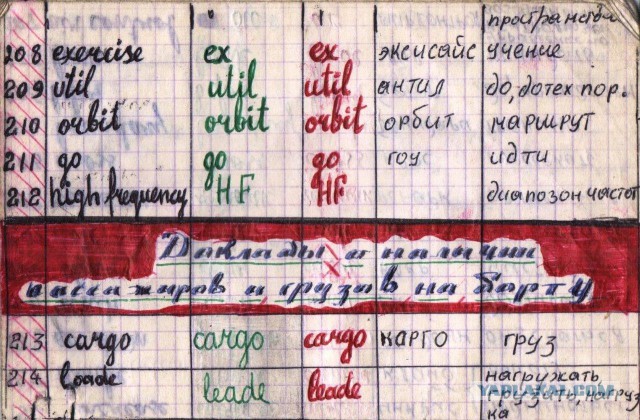 пространство
208 exercise ex ex эксисайс учение
209 util util util антил до, дотех пор.
210 orbit orbit orbit орбит маршрут
211 go go go гоу идти
212 high frequency HF HF диапозон частот
Доклады о наличии
пассажиров и грузов на борту
213 cargo cargo cargo карго груз
214 loade leade leade нагружать
грузить, нагруз
ка
YAPLAKAL.COM